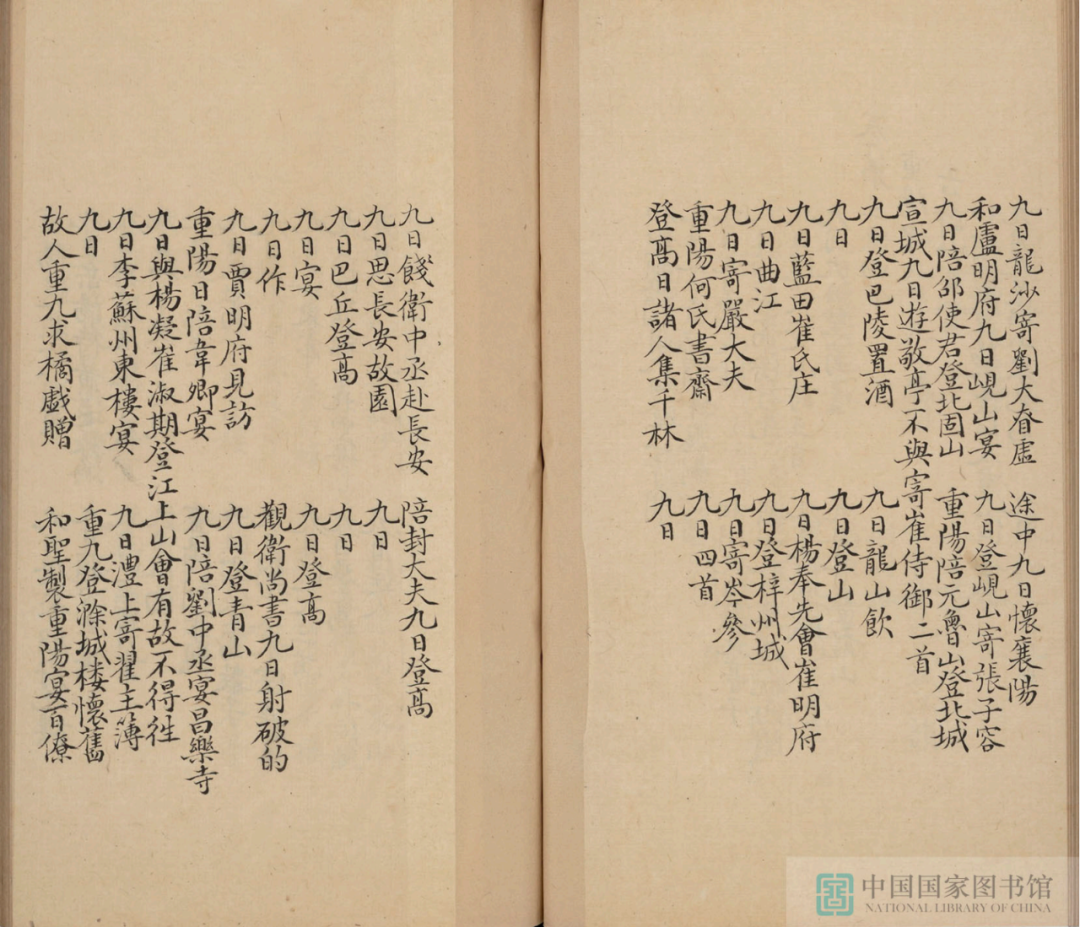 九日龍沙寄劉大眘虛　途中九日懷襄陽
和盧明府九日峴山宴　九日登峴山寄張子容
九日陪邵使君登北固山　重陽陪元魯山登北城
宣城九日遊敬亭不與寄崔侍御二首
九日登巴陵置酒　九日龍山飲
九日　九日登山
九日藍田崔氏庄　九日楊奉先會崔明府
九日曲江　九日登梓州城
九日寄嚴大夫　九日寄岑參
重陽何氏書齋　九日四首
登髙日諸人集千林　九日
九日餞衛中丞赴長安　陪封大夫九日登髙
九日思長安故園　九日
九日巴丘登髙　九日
九日宴　九日登髙
九日作　觀衛尚書九日射破的
九日賈明府見訪　九日登青山
重陽日陪韋卿宴　九日陪劉中丞宴昌樂寺
九日與楊凝崔淑期登江上山會有故不得往
九日李蘇州東樓宴　九日澧上寄翟主簿
九日　重九登滁城楼懷舊
故人重九求橘戲贈　和聖製重陽宴百僚
中国国家图书馆
NATIONAL LIBRARY OF CHINA